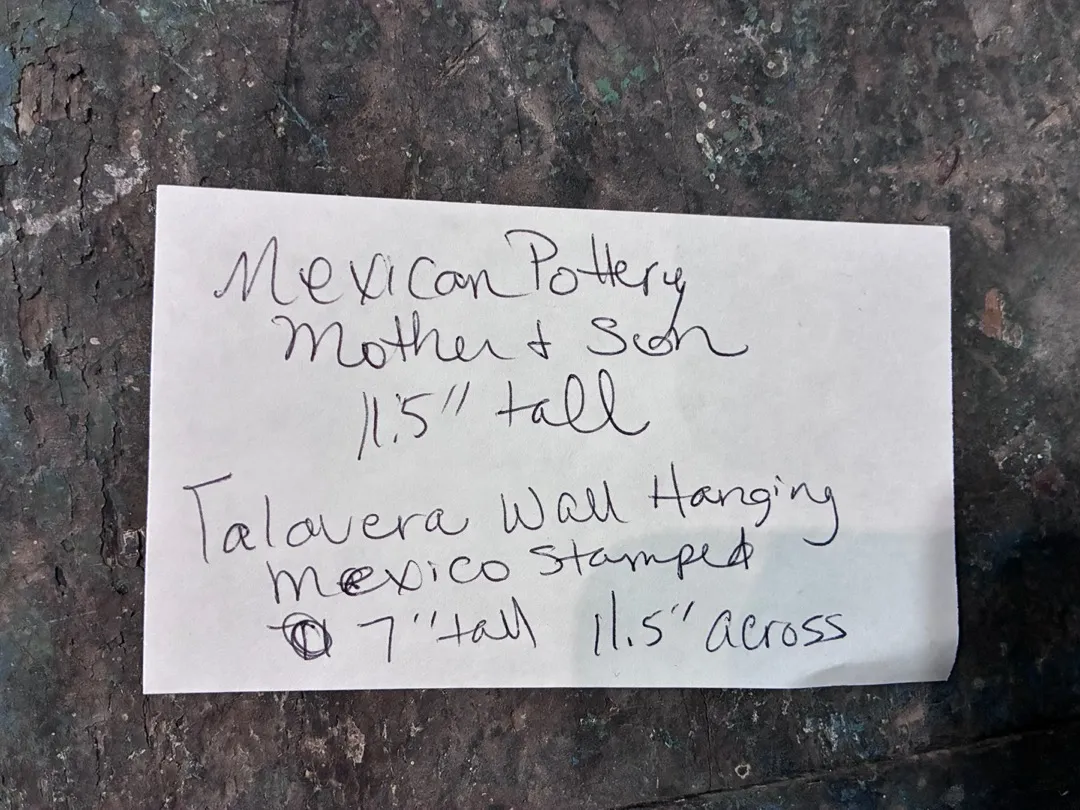 Mexican Pottery
Mother & Son
11.5" tall
Talavera Wall Hanging
Mexico Stamped
7" tall 11.5" across